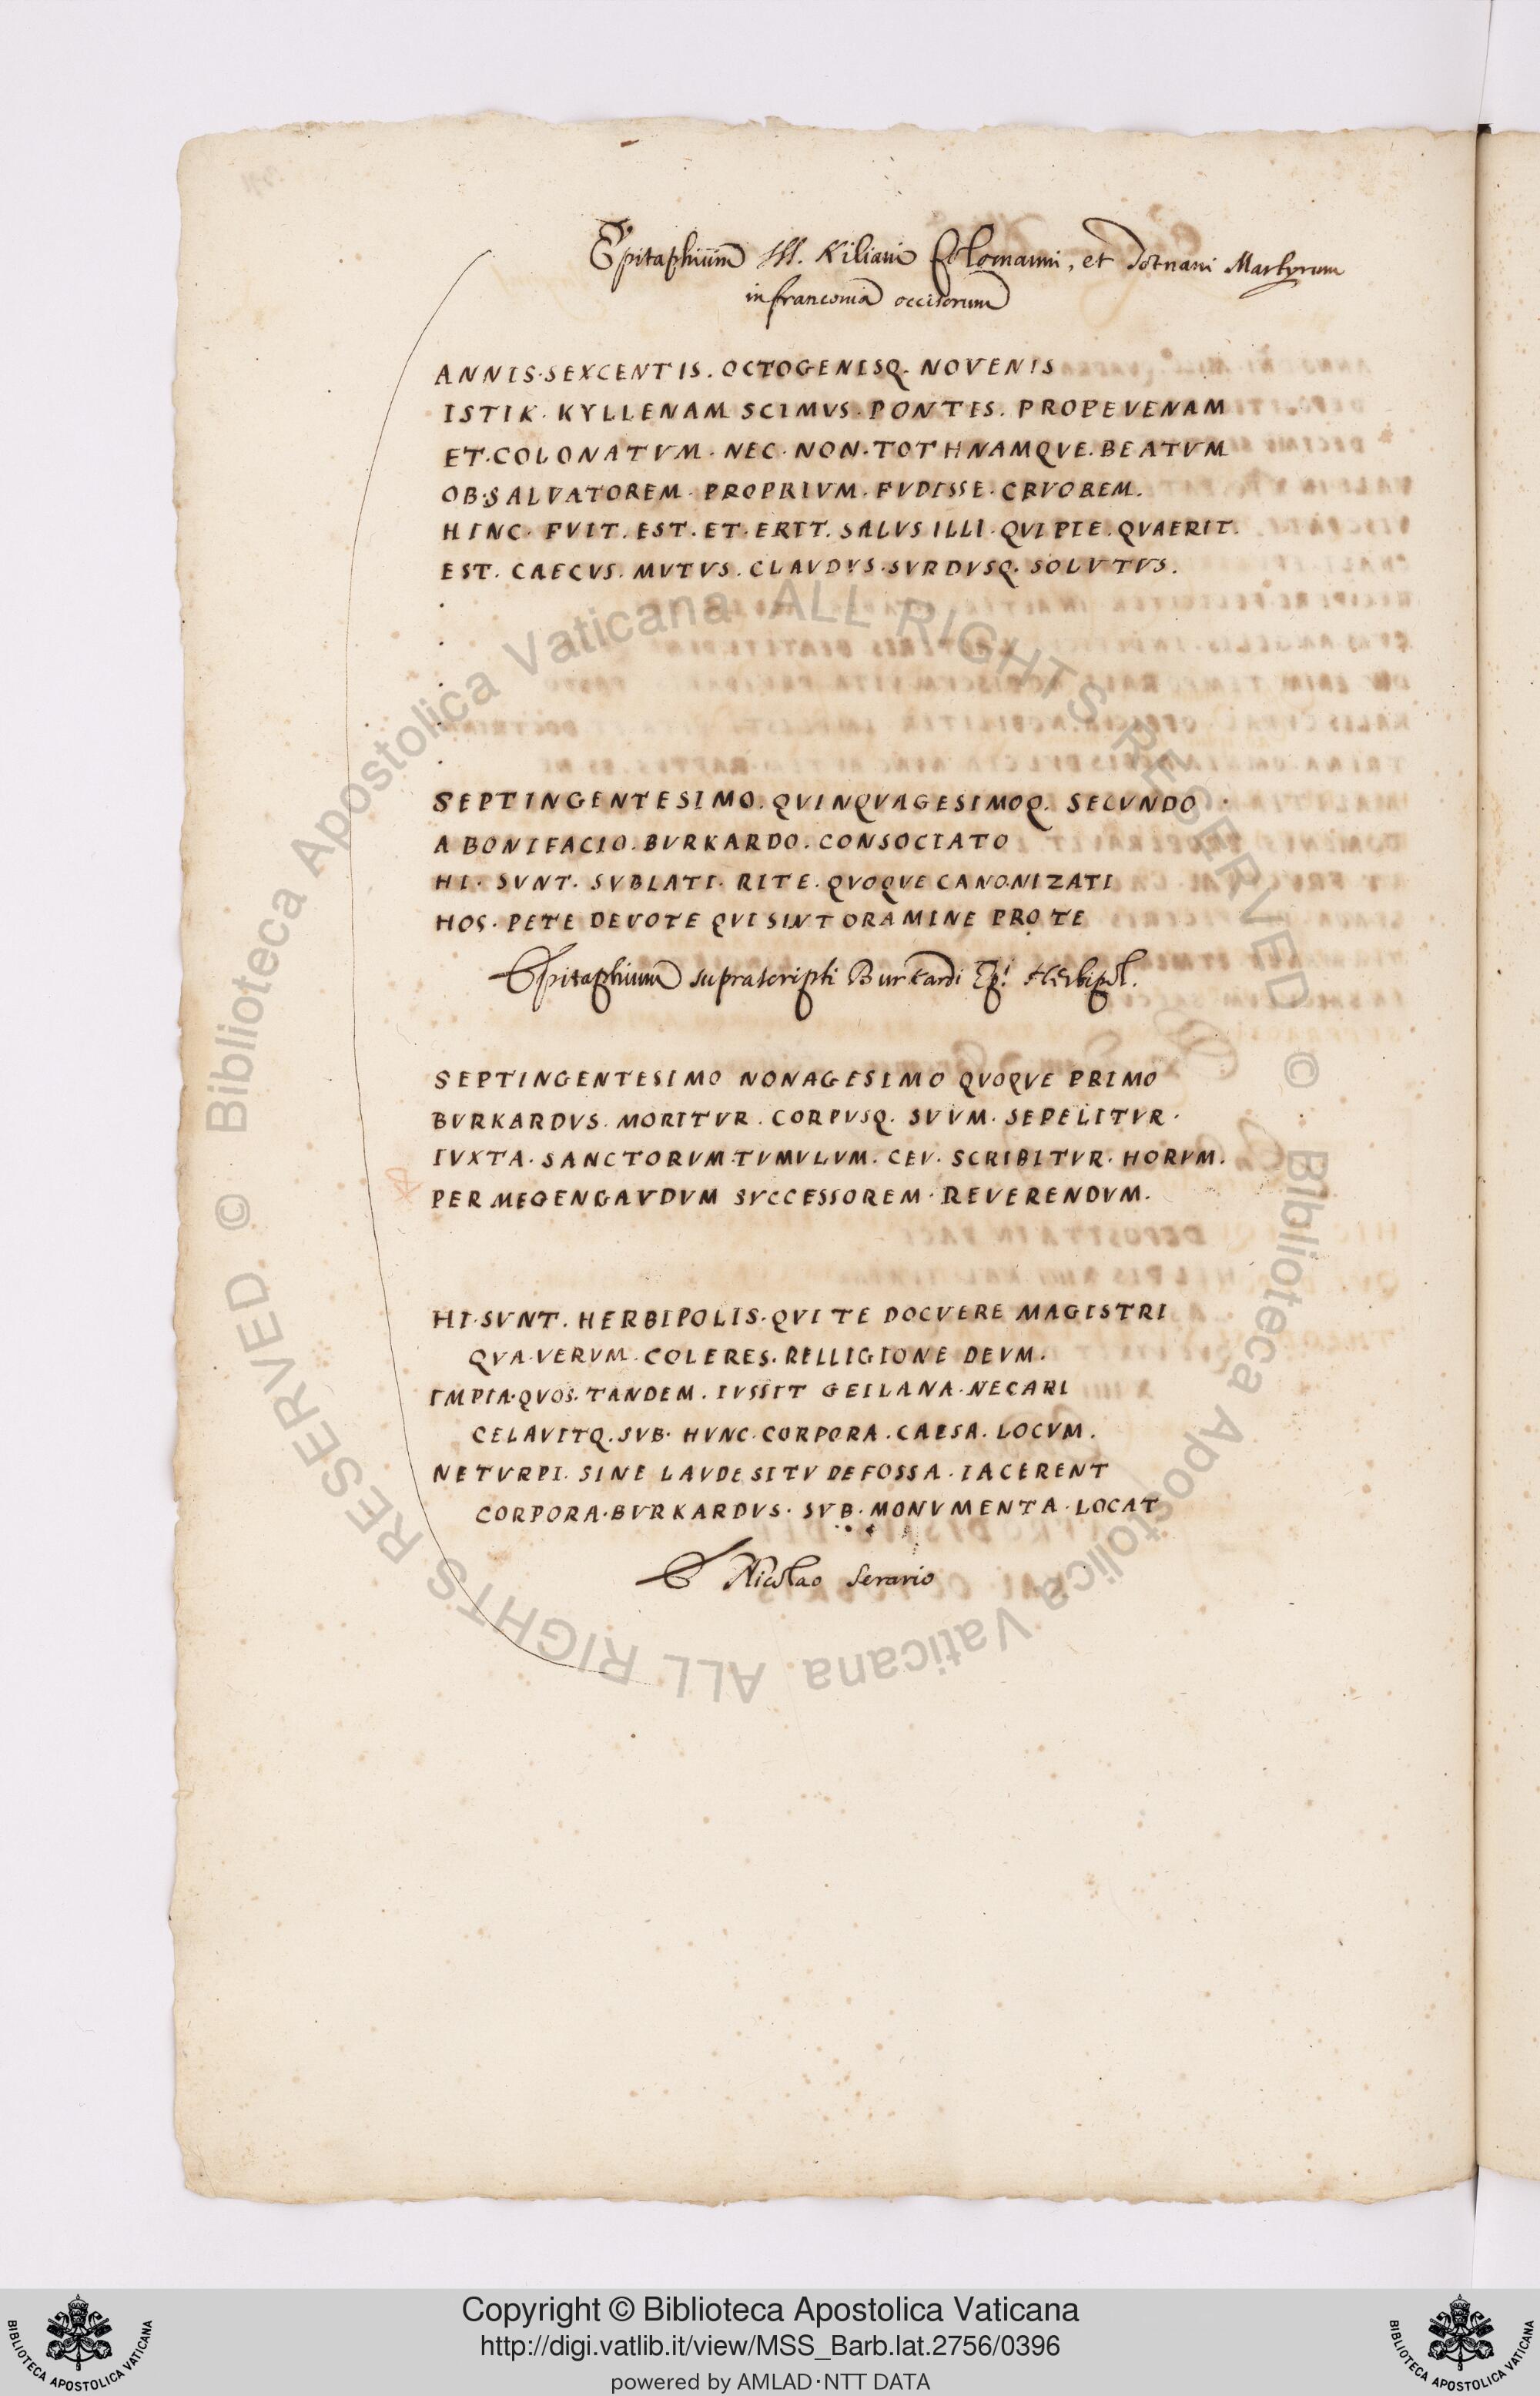 Epitaphium SS. Kiliani Colomanni, et Totnani Martyrum
in franconia occisorum
ANNIS · SEXCENTIS . OCTOGENISQ . NOVENIS
ISTIK . KYLLENAM SCIMVS . PONTES . PROPE VENAM
ET . COLONATVM . NEC . NON . TOTHNAMQVE . BEATVM
OB · SALVATOREM . PROPRIVM . FVDISSE . CRVOREM.
HINC . FVIT . EST . ET . ERIT . SALVS ILLI . QVI PIE . QVAERIT.
EST . CAECVS . MVTVS . CLAVDVS . SVRDVSQ . SOLVTVS.
SEPTINGENTESIMO . QVINQVAGESIMOQ . SECVNDO .
A BONIFACIO . BVRKARDO . CONSOCIATO
HI . SVNT . SVBLATI . RITE . QVOQVE CANONIZATI
HOS . PETE DEVOTE QVI SINT ORAMINE PRO TE
Epitaphium suprascripti Burkardi Ep.i Herbipol.
SEPTINGENTESIMO NONAGESIMO QVOQVE PRIMO
BVRKARDVS . MORITVR . CORPVSQ . SVVM . SEPELITVR .
IVXTA . SANCTORVM . TVMVLVM . CEV . SCRIBITVR . HORVM .
PER MEGENGAVDVM SVCCESSOREM . REVERENDVM .
HI . SVNT . HERBIPOLIS . QVI TE DOCVERE MAGISTRI
QVA . VERVM . COLERES . RELLIGIONE DEVM .
IMPIA . QVOS . TANDEM . IVSSIT GEILANA . NECARI
CELAVITQ . SVB . HVNC . CORPORA . CAESA . LOCVM .
NE TVRPI . SINE LAVDE SITV DEFOSSA . IACERENT
CORPORA . BVRKARDVS . SVB . MONVMENTA . LOCAT
E Nicolao Serario
© Biblioteca Apostolica Vaticana ALL RIGHTS RESERVED
© Biblioteca Apostolica Vaticana ALL RIGHTS RESERVED
Copyright © Biblioteca Apostolica Vaticana
http://digi.vatlib.it/view/MSS_Barb.lat.2756/0396
powered by AMLAD·NTT DATA
BIBLIOTECA APOSTOLICA VATICANA
BIBLIOTECA APOSTOLICA VATICANA